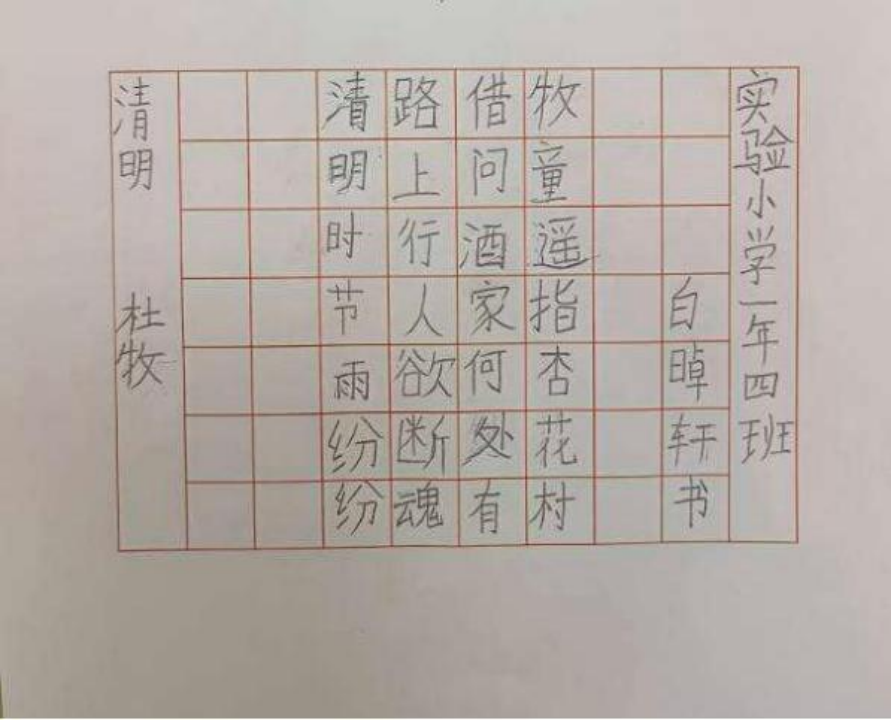 清明 杜牧
清明时节雨纷纷
路上行人欲断魂
借问酒家何处有
牧童遥指杏花村
白晫轩书
实验小学一年四班